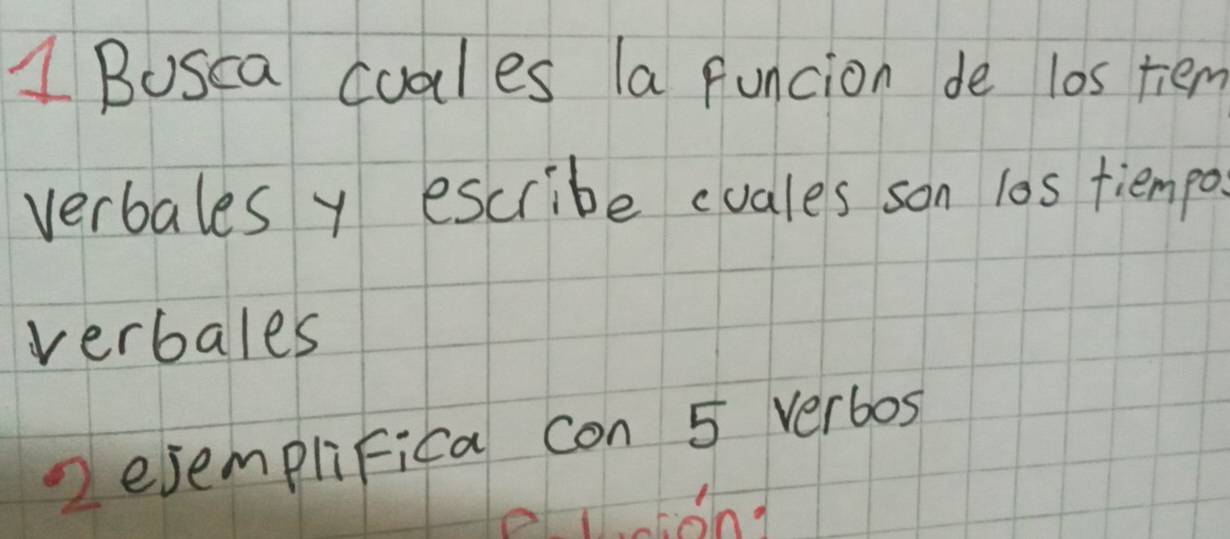 1 Busca cual es la funcion de los tiem
verbales y escribe cuales son los tiempos
verbales
2 ejemplifica con 5 verbos